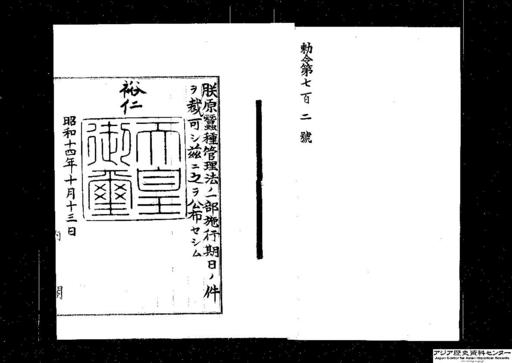 勅令第七百二號
朕原蠶種管理法ノ一部施行期日ノ件
ヲ裁可シ茲ニ之ヲ公布セシム
裕仁
天皇
御璽
昭和十四年十月十三日
内閣
アジア歴史資料センター
Japan Center for Asian Historical Records